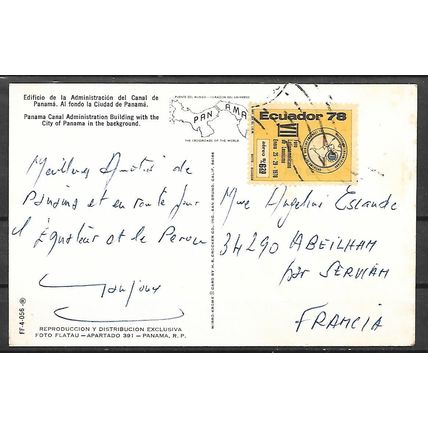 Edificio de la Administración del Canal de
Panamá. Al fondo la Ciudad de Panamá.
Panama Canal Administration Building with the
City of Panama in the background.
PUENTE DEL MUNDO - CORAZON DEL UNIVERSO
PANAMA
THE CROSSROADS OF THE WORLD
Ecuador 78
VII
Enero 25-29-1978
aéreo
Meilleures Amitiés de
Panama et en route pour
l'Equateur et le Perou
Mme Angelini
34290 ABEILHAM
par SERVIAN
FRANCIA
FF-4-056
REPRODUCCION Y DISTRIBUCION EXCLUSIVA
FOTO FLATAU - APARTADO 391 - PANAMA, R. P.